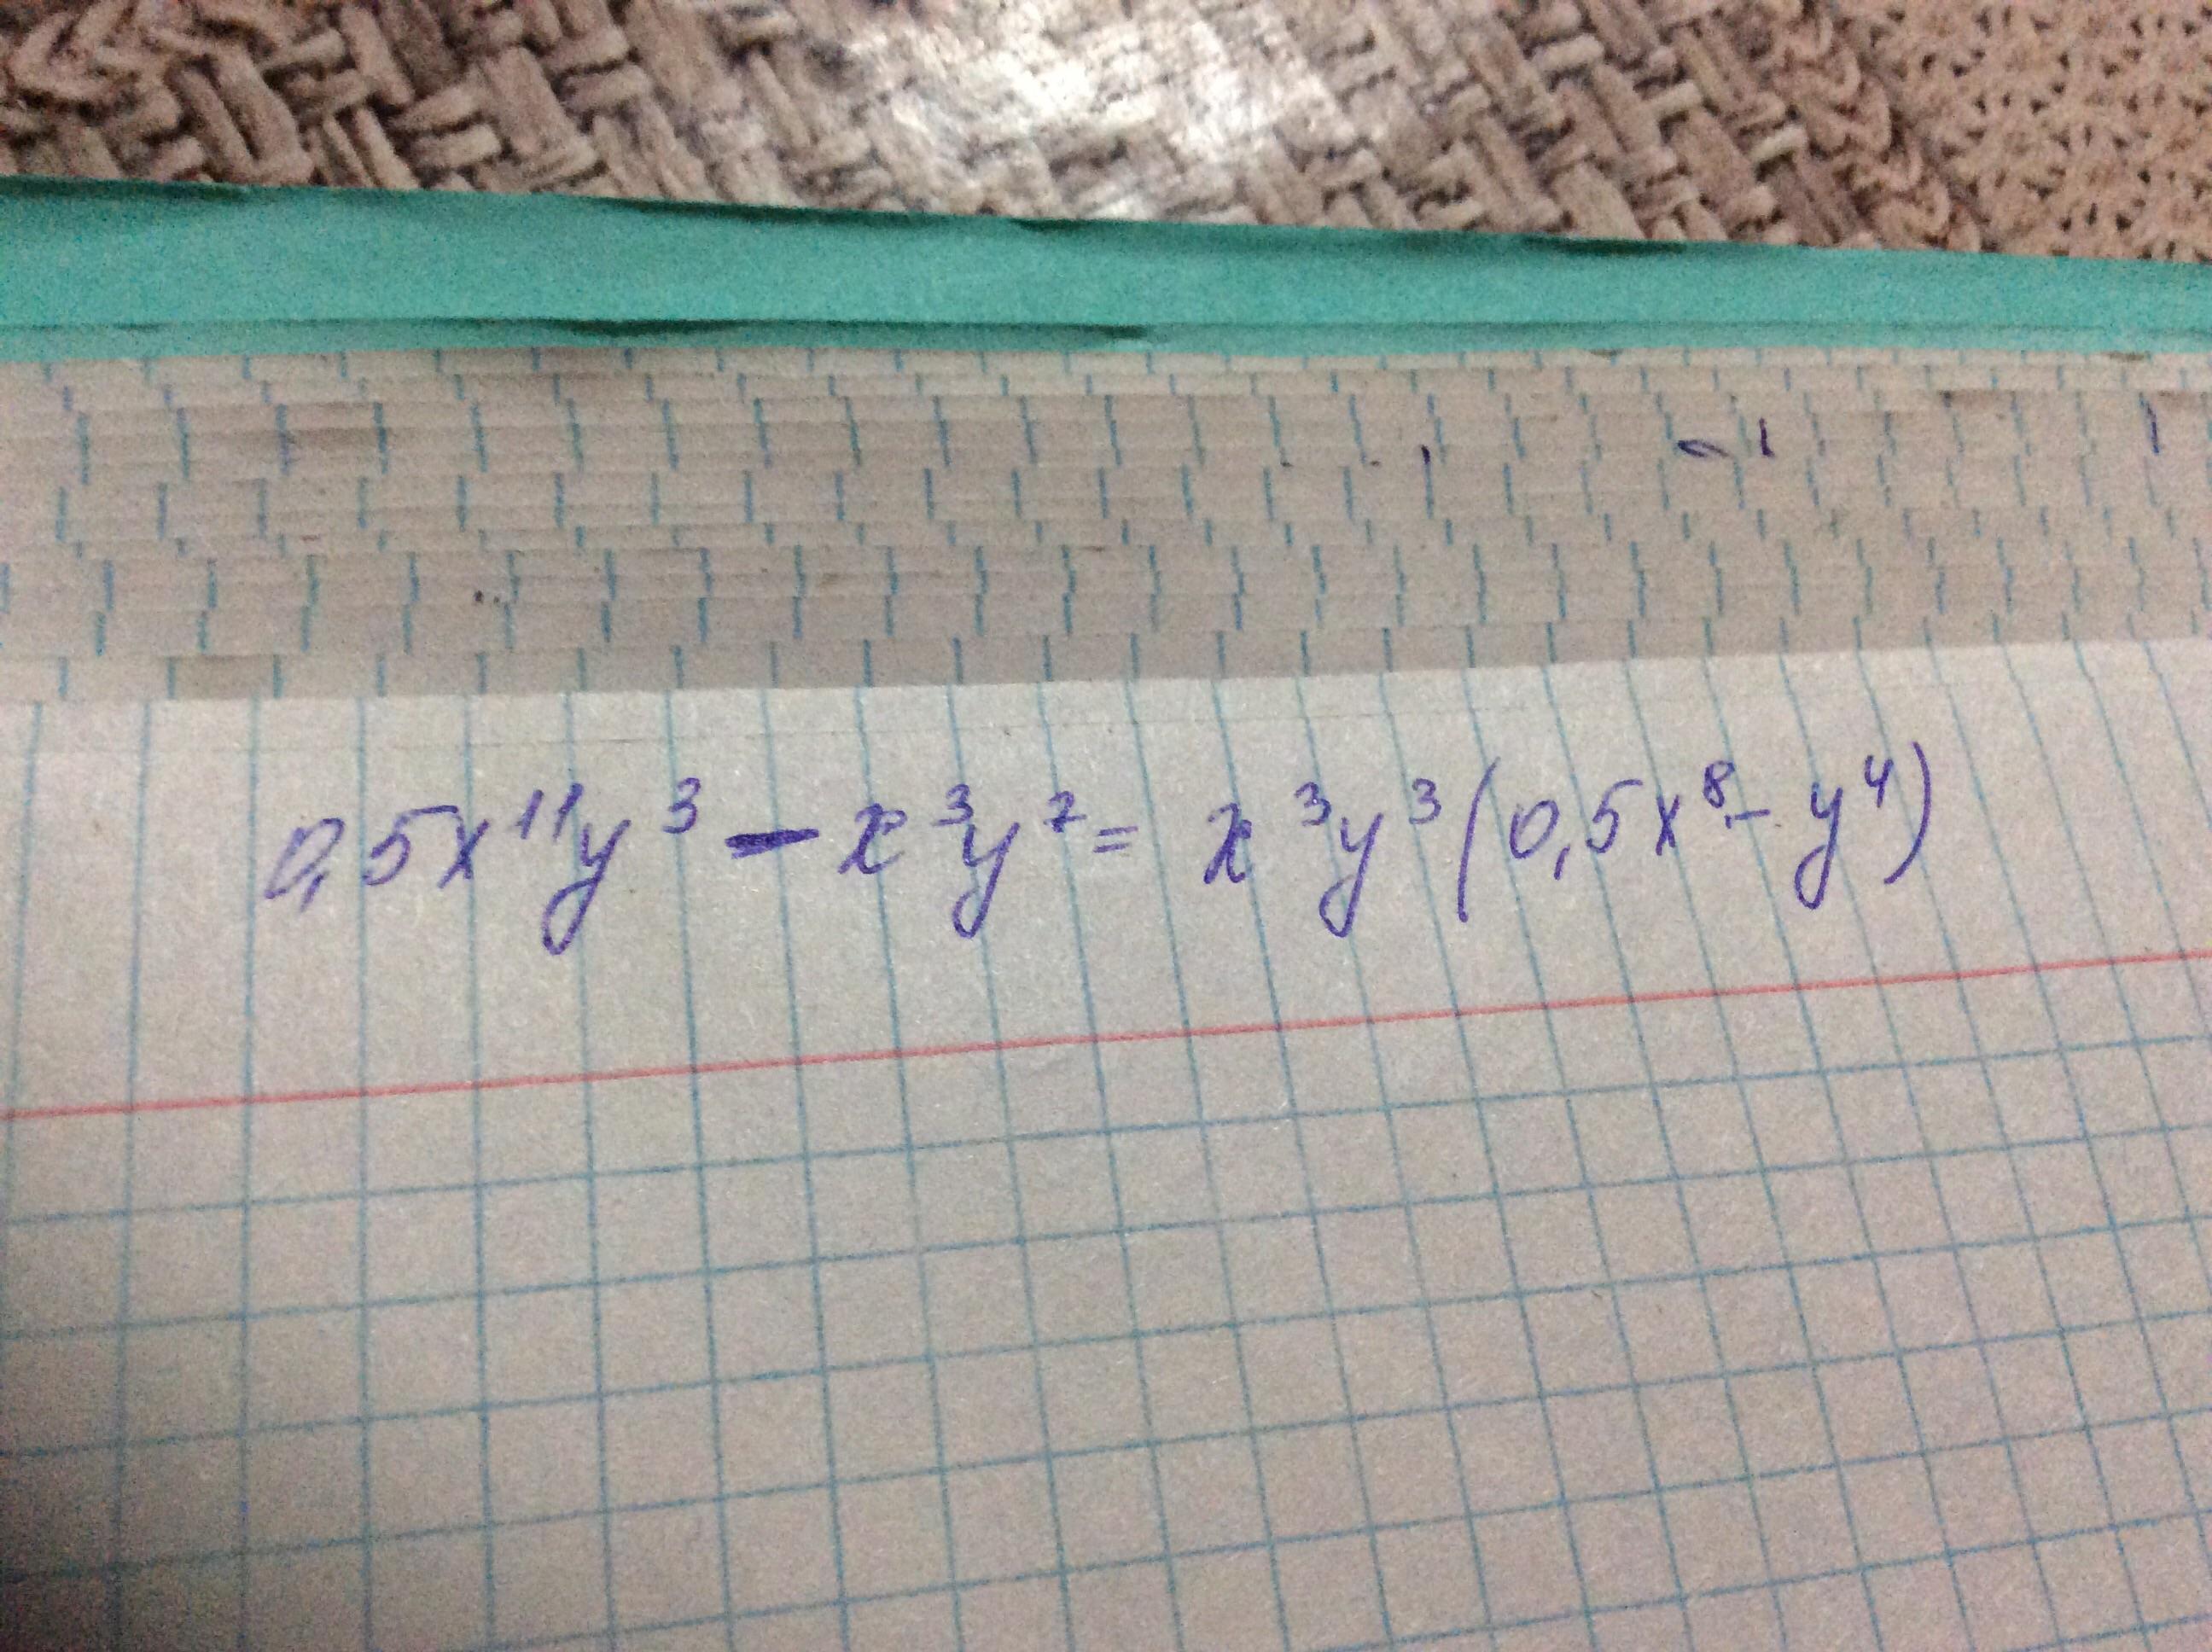 0,5x¹¹y³ − x³y⁷ = x³y³(0,5x⁸ − y⁴)